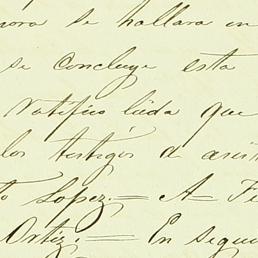 ora se hallara en
se concluye esta
Notifico lida que
los testigos d asis
to Lopez.= A Fe
Ortiz.= En segui